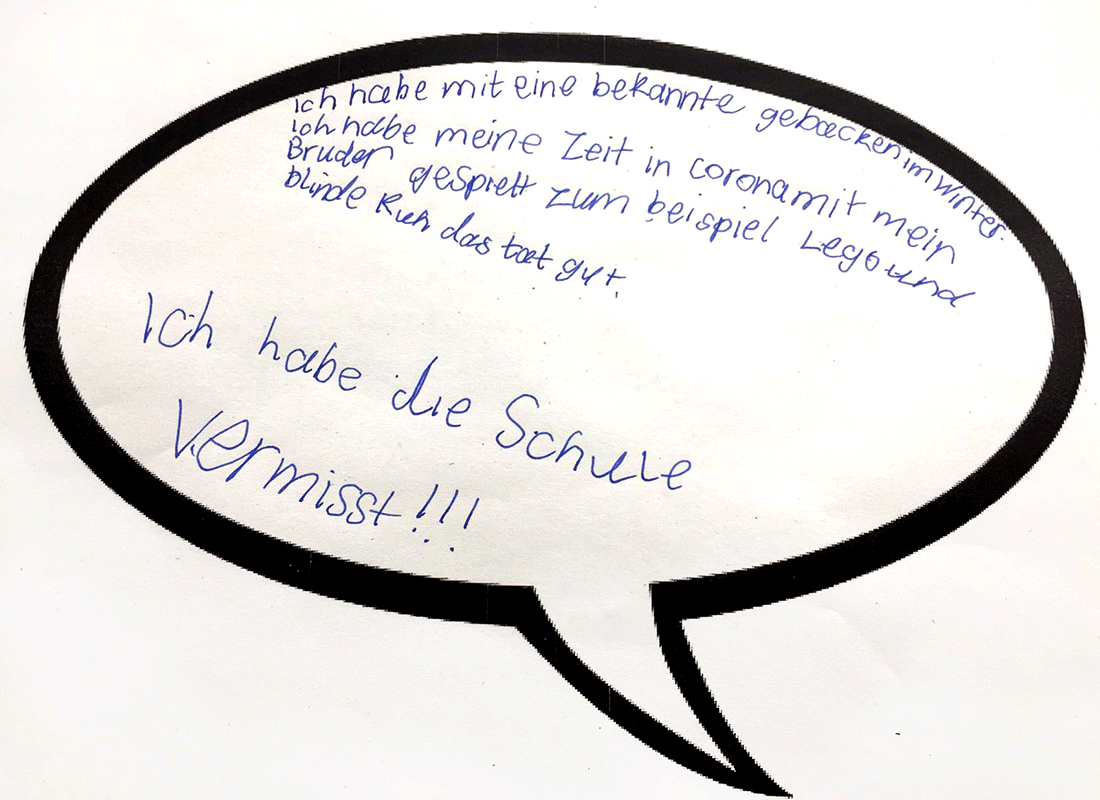 Ich habe mit eine bekannte gebacken im Winter.
Ich habe meine Zeit in corona mit mein
Bruder gespielt zum beispiel Lego und
blinde Kuh das tat gut.
Ich habe die Schule
vermisst!!!